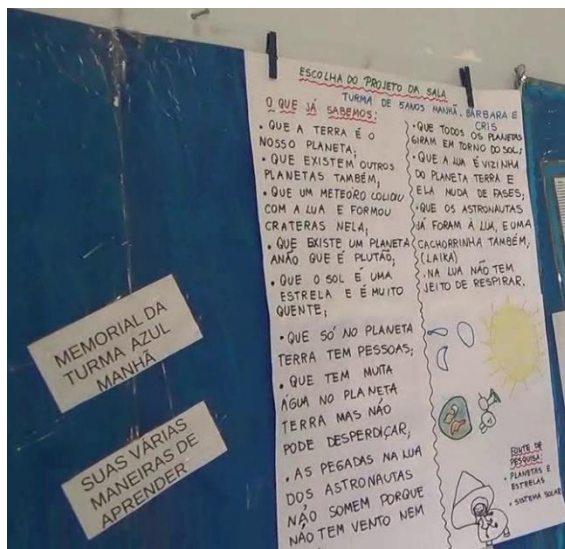 ESCOLHA DO PROJETO DA SALA
TURMA DE 5ANOS MANHÃ, BÁRBARA E
CRIS
O QUE JÁ SABEMOS:
• QUE A TERRA É O
NOSSO PLANETA;
• QUE EXISTEM OUTROS
PLANETAS TAMBÉM;
• QUE UM METEÓRO COLIDIU
COM A LUA E FORMOU
CRATERAS NELA;
• QUE EXISTE UM PLANETA
ANÃO QUE É PLUTÃO;
• QUE O SOL É UMA
ESTRELA E É MUITO
QUENTE;
• QUE SÓ NO PLANETA
TERRA TEM PESSOAS;
• QUE TEM MUITA
ÁGUA NO PLANETA
TERRA MAS NÃO
PODE DESPERDIÇAR;
• AS PEGADAS NA LUA
DOS ASTRONAUTAS
NÃO SOMEM PORQUE
NÃO TEM VENTO NEM
• QUE TODOS OS PLANETAS
GIRAM EM TORNO DO SOL;
• QUE A LUA É VIZINHA
DO PLANETA TERRA E
ELA MUDA DE FASES;
• QUE OS ASTRONAUTAS
JÁ FORAM À LUA, E UMA
CACHORRINHA TAMBÉM;
(LAIKA)
• NA LUA NÃO TEM
JEITO DE RESPIRAR.
FONTE DE
PESQUISA:
• PLANETAS E
ESTRELAS
• SISTEMA SOLAR
MEMORIAL DA
TURMA AZUL
MANHÃ
SUAS VÁRIAS
MANEIRAS DE
APRENDER